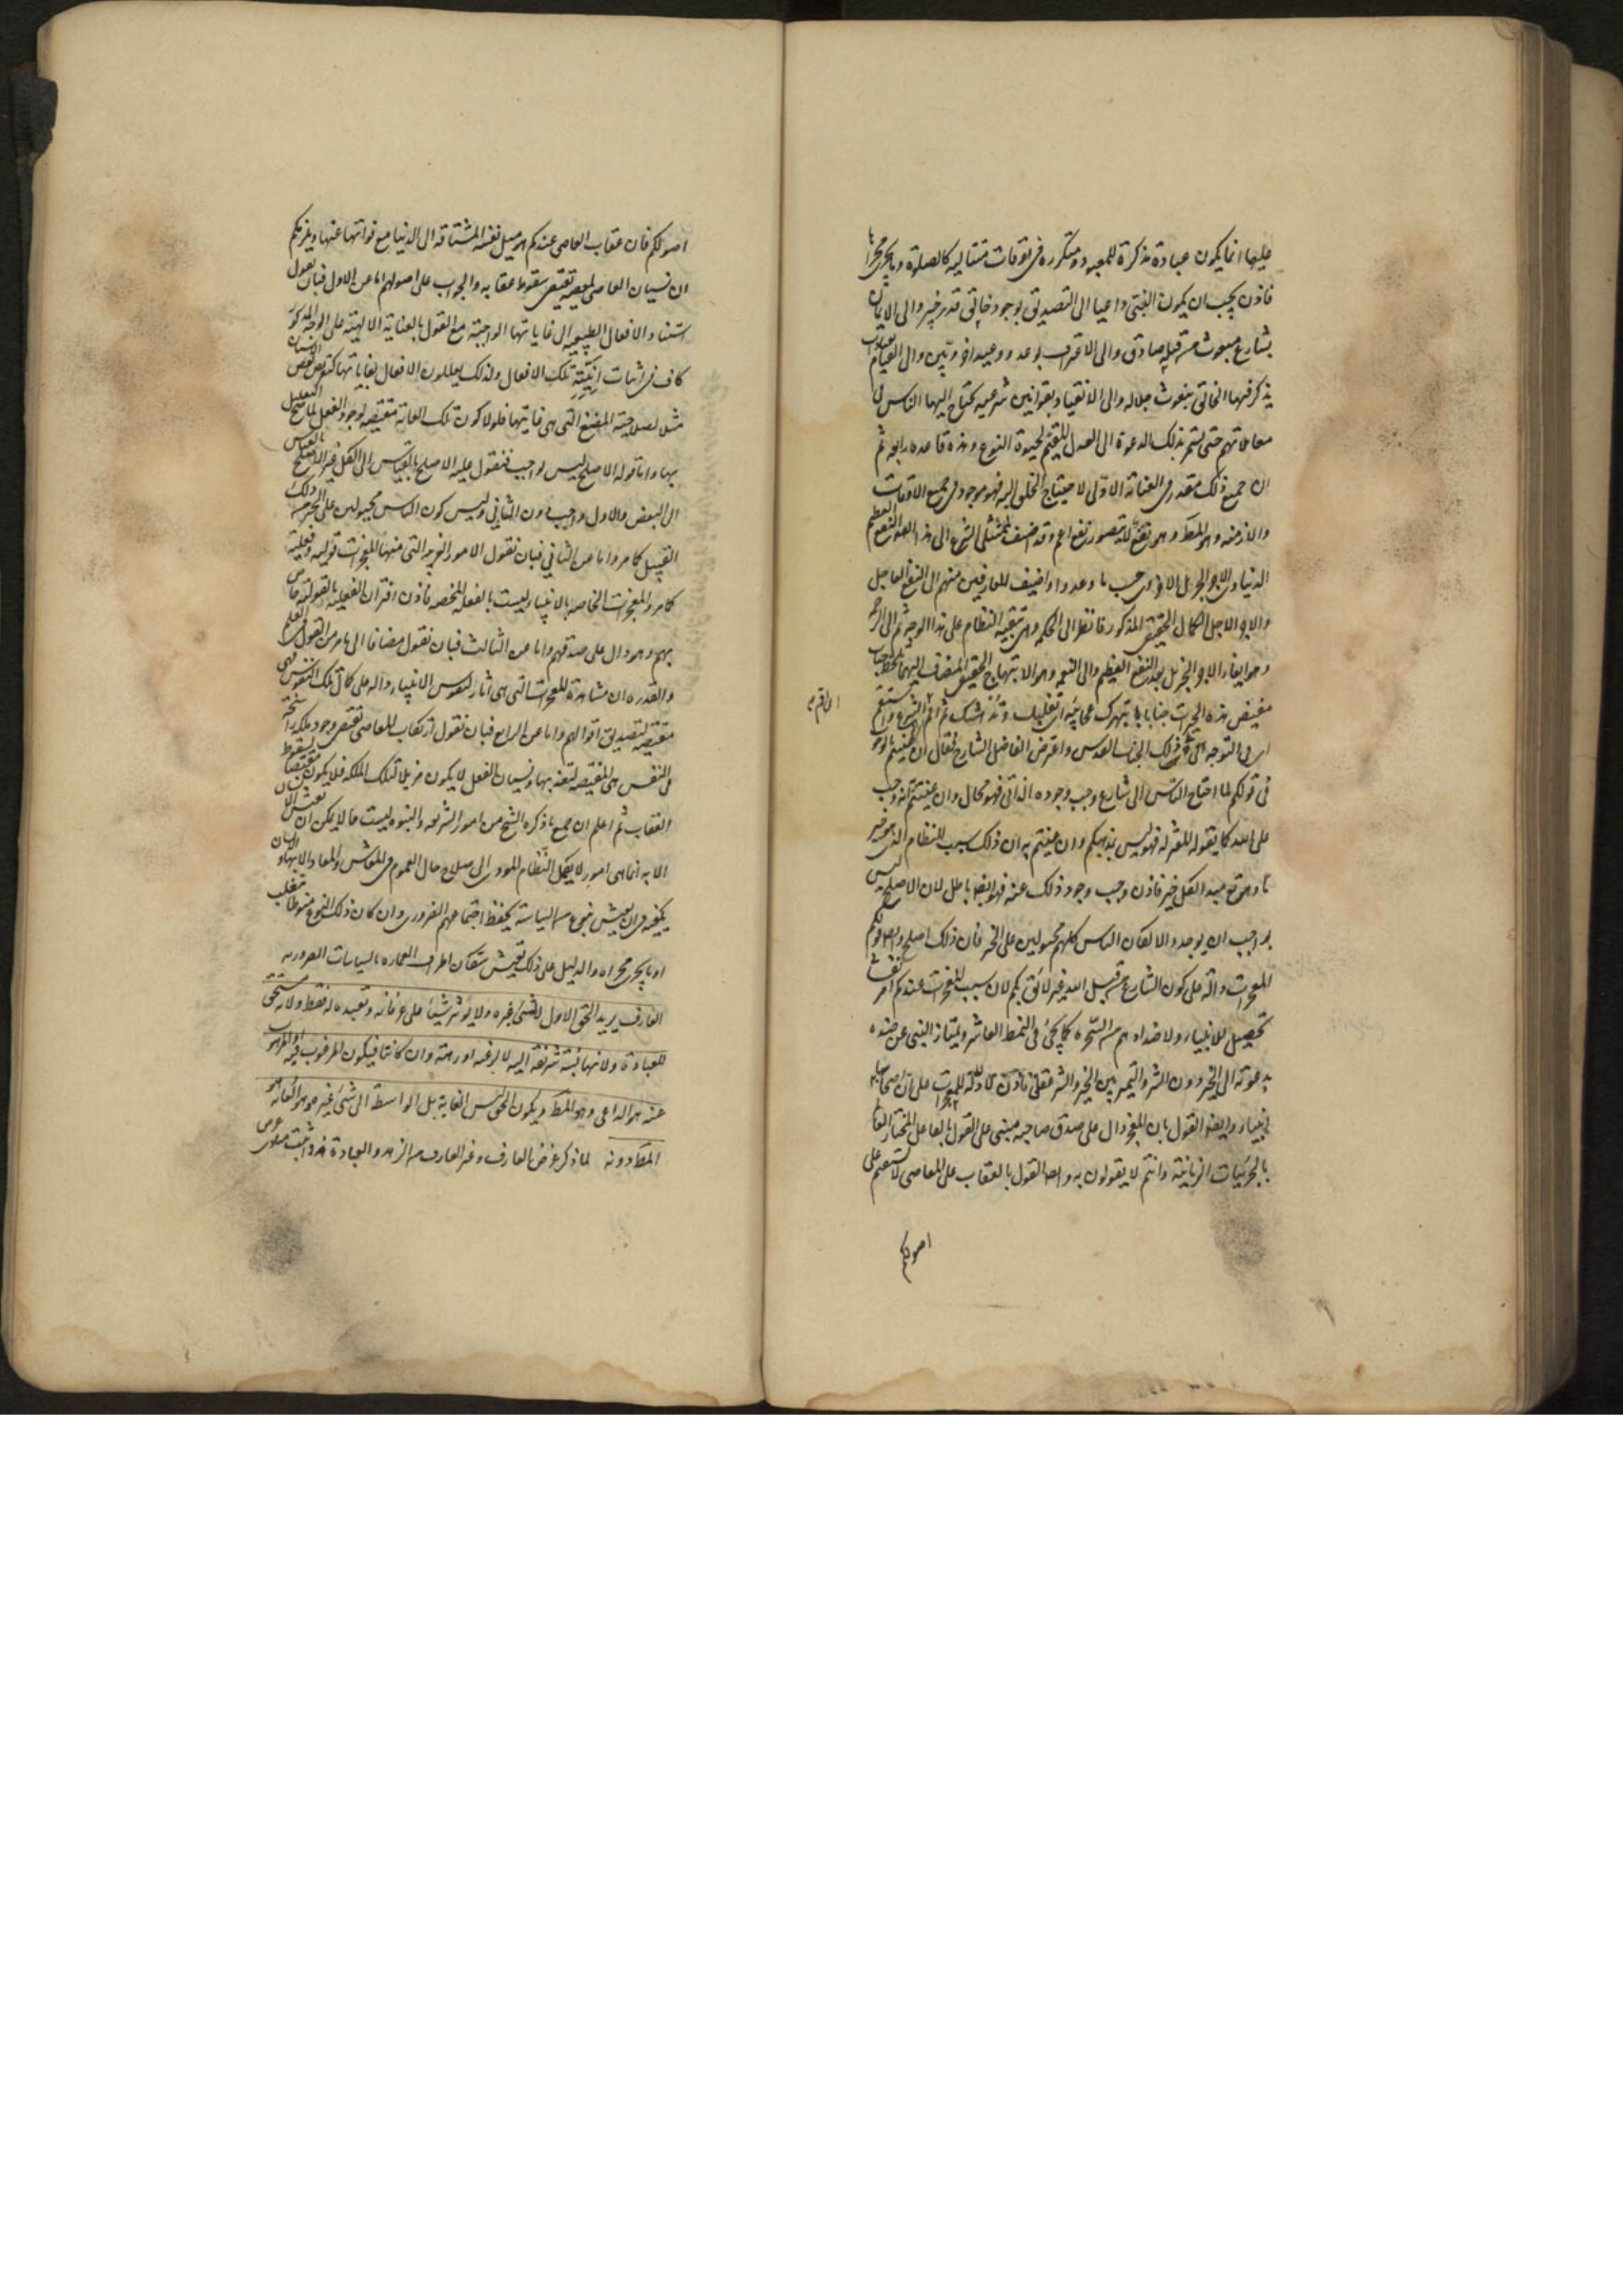 عليها انما يكون عبادة مذكرة للمعبود و متكرره فى اوقات متتاليه كالصلوة و ما يجرى مجراها
فاذن يجب ان يكون النبى داعيا الى التصديق بوجود خالق قدير خبير والى الايمان
بشارع مبعوث من قبله صادق والى الاعتراف بوعد و وعيد اخرويين والى القيام بعبادات
يذكر فيها الخالق بنعوت جلاله والى الانقياد بقوانين شرعيه يحتاج اليها الناس فى
معاملاتهم حتى يستمر بذلك الدعوة الى العدل المقيم لحيوة النوع وهذه قاعده رابعه ثم
ان جميع ذلك مقدر فى العناية الاولى لاحتياج الخلق اليه فهو موجود فى جميع الاوقات
والازمنه وهو المط وهو نفع لا يتصور نفع اعم وقد اضيف لممتثلى الشرع الى هذا النفع العظيم
الدنياوى الاجر الجزيل الاخروى حسب ما وعدوا واضيف للعارفين منهم الى النفع العاجل
والاجر الاجل الكمال الحقيقى المذكور فانظر الى الحكمه وهى تبقيه النظام على هذا الوجه ثم الى الرحمة
وهو ايفاء الاجر الجزيل بعد النفع العظيم والى النعمه وهو الابتهاج الحقيقى المضاف اليهما تلحظ جناب
مفيض هذه الخيرات جنابا يبهرك عجائبه اى تغلبك وتدهشك ثم اقم الشرع واستقم
اى فى التوجه الى ذلك الجناب القدس واعترض الفاضل الشارح فقال ان عنيتم بالوجوب
فى قولكم لما احتاج الناس الى شارع وجب وجوده الذاتى فهو محال وان عنيتم انه وجب
على الله كما يقوله المعتزله فهو ليس بمذهبكم وان عنيتم به ان ذلك سبب للنظام الذى هو خير
ما وهو تع مبدا لكل خير فاذن وجب وجود ذلك عنه فهو ايضا باطل لان الاصلح ليس
بواجب ان يوجد والا لكان الناس كلهم مجبولين على الخير فان ذلك اصلح وايضا قولكم
المعجزات دالة على كون الشارع من قبل الله غير لائق بكم لان سبب المعجزات عندكم امر
تحصيل للانبياء ولاضدادهم من السحره كما يجئ فى النمط العاشر ويمتاز النبى عن ضده
بدعوته الى الخير دون الشر والتميز بين الخير والشر عقلى فاذن لا دلالة للمعجزات على ان اصحابها
انبياء وايضا القول بان المعجز دال على صدق صاحبه مبنى على القول بالفاعل المختار العالم
بالجزئيات الزمانية وانتم لا يقولون به وايضا القول بالعقاب على المعاصى لا يستقيم على
اصولكم
اصولكم فان عقاب العاصى عندكم هو ميل نفسه المشتاقه الى الدنيا مع فواتها عنها ويلزمكم
ان نسيان العاصى لمعصيته يقتضى سقوط عقابه والجواب على اصولهم اما عن الاول فبان نقول
استناد الافعال الطبيعيه الى غاياتها الواجبة مع القول بالعناية الالهية على الوجه المذكور
كاف فى اثبات انية تلك الافعال ولذلك يعللون الافعال بغاياتها كتعريض بعض الاسنان
مثلا لصلاحية المضغ التى هى غايتها فلولا كون تلك الغاية مقتضيه لوجود الفعل لما صح التعليل
بها واما قوله الاصلح ليس بواجب فنقول عليه الاصلح بالقياس الى الكل غير الاصلح بالقياس
الى البعض والاول واجب دون الثانى وليس كون الناس مجبولين على الخير من ذلك
القبيل كما مر واما عن الثانى فبان نقول الامور الغريبه التى منها المعجزات قوليه وفعلية
كما مر والمعجزات الخاصه بالانبياء ليست بالفعليه المحضه فاذن اقتران الفعلية بالقولية خاص
بهم وهو دال على صدقهم واما عن الثالث فبان نقول مضافا الى ما مر من القول فى العلم
والقدره ان مشاهدة المعجزات التى هى آثار لنفوس الانبياء دالة على كمال تلك النفوس فهى
مقتضيه لتصديق اقوالهم واما عن الرابع فبان نقول ارتكاب المعاصى يقتضى وجود ملكه راسخة
فى النفس هى المقتضيه لتعذبها ونسيان الفعل لا يكون مزيلا لتلك الملكه فلا يكون مقتضيا لسقوط
العقاب ثم اعلم ان جميع ما ذكره الشيخ من امور الشريعه والنبوه ليست مما لا يمكن ان يعيش الانسان
الا به انما هى امور لا يكمل النظام المؤدى الى صلاح حال العموم فى المعاش والمعاد الا بها والانسان
يكفيه فى ان يعيش نوع من السياسة يحفظ اجتماعهم الضرورى وان كان ذلك النوع منوطا بتغلب
او ما يجرى مجراه والدليل على ذلك تعيش سكان اطراف العماره بالسياسات الضروريه
العارف يريد الحق الاول لا لشئ غيره ولا يؤثر شيئا على عرفانه وتعبده له فقط ولانه مستحق
للعبادة ولانها نسبة شريفه اليه لا لرغبه او رهبة وان كانتا فيكون المرغوب فيه او المرهوب
عنه هو الداعى وهو المط ويكون الحق ليس الغاية بل الواسطة الى شئ غيره هو الغاية وهو
المط دونه لما ذكر غرض العارف وغير العارف من الزهد والعبادة